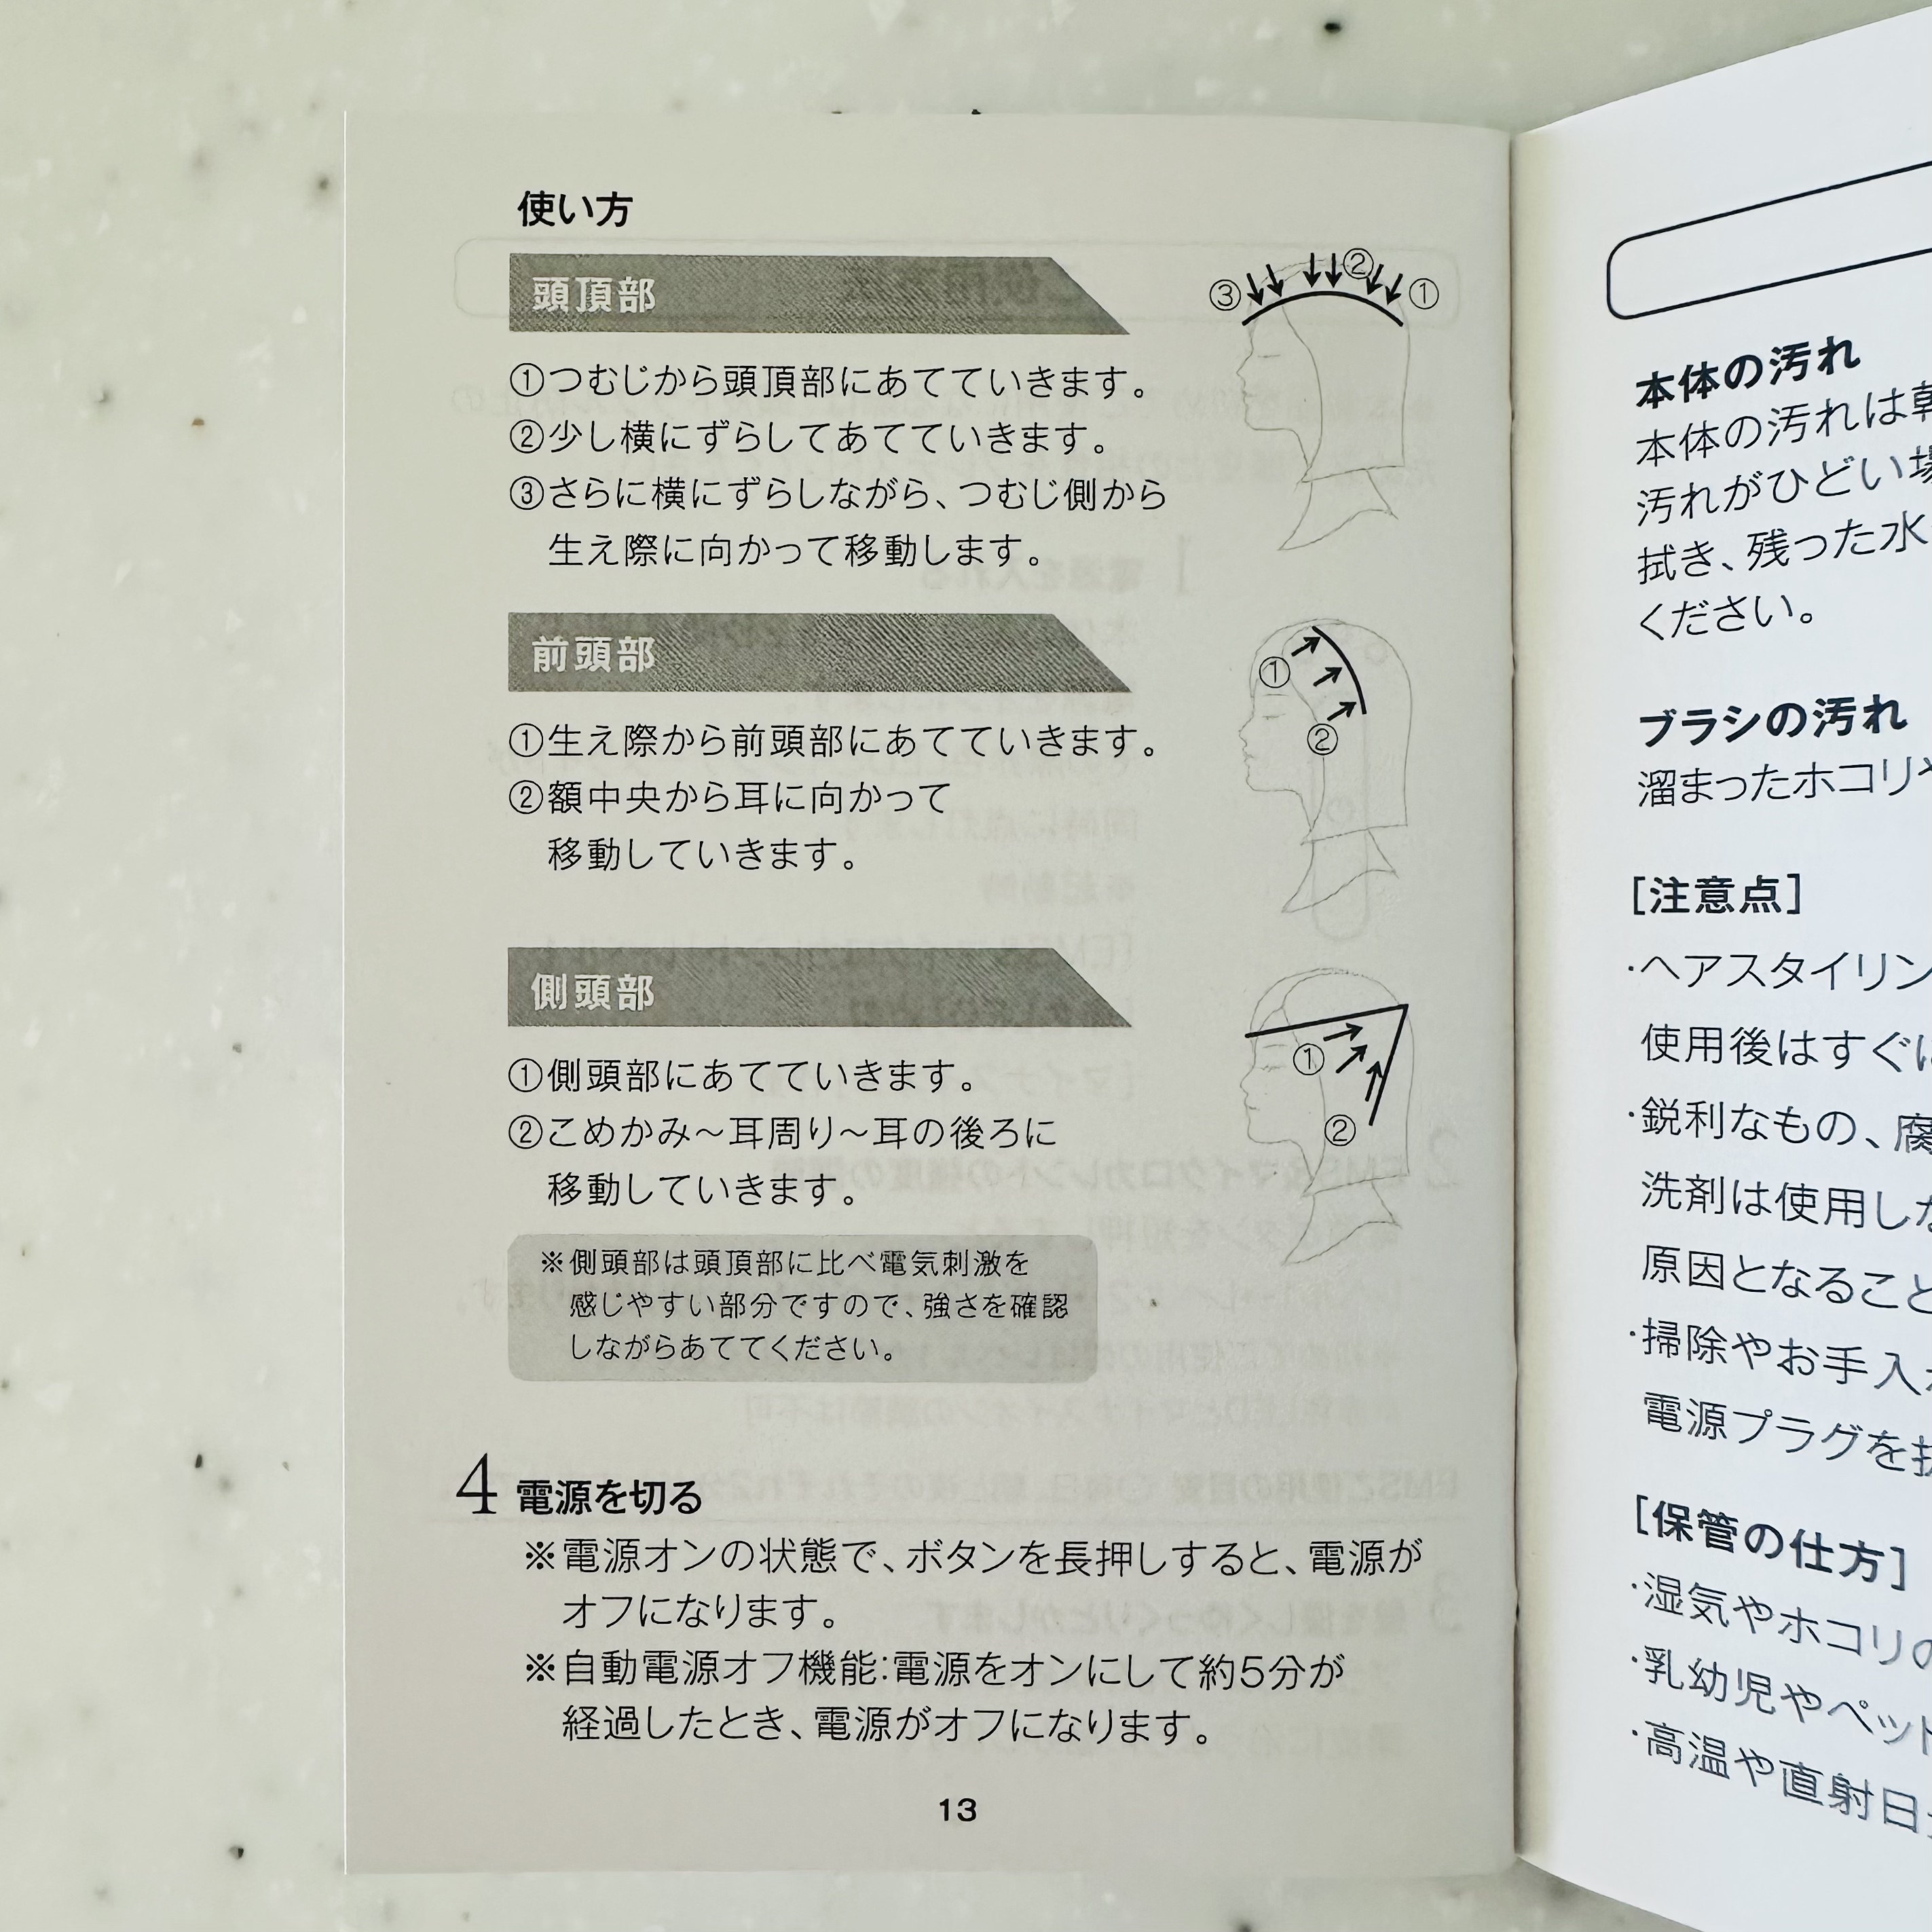 使い方
頭頂部
①つむじから頭頂部にあてていきます。
②少し横にずらしてあてていきます。
③さらに横にずらしながら、つむじ側から
生え際に向かって移動します。
③ ② ①
前頭部
①生え際から前頭部にあてていきます。
②額中央から耳に向かって
移動していきます。
①
②
側頭部
①側頭部にあてていきます。
②こめかみ～耳周り～耳の後ろに
移動していきます。
①
②
※側頭部は頭頂部に比べ電気刺激を
感じやすい部分ですので、強さを確認
しながらあててください。
4 電源を切る
※電源オンの状態で、ボタンを長押しすると、電源が
オフになります。
※自動電源オフ機能:電源をオンにして約5分が
経過したとき、電源がオフになります。
13
本体の汚れ
本体の汚れは
汚れがひどい
拭き、残った水
ください。
ブラシの汚れ
溜まったホコリ
[注意点]
・ヘアスタイリン
使用後はすぐ
・鋭利なもの、腐
洗剤は使用し
原因となること
・掃除やお手入
電源プラグを
[保管の仕方]
・湿気やホコリの
・乳幼児やペット
・高温や直射日